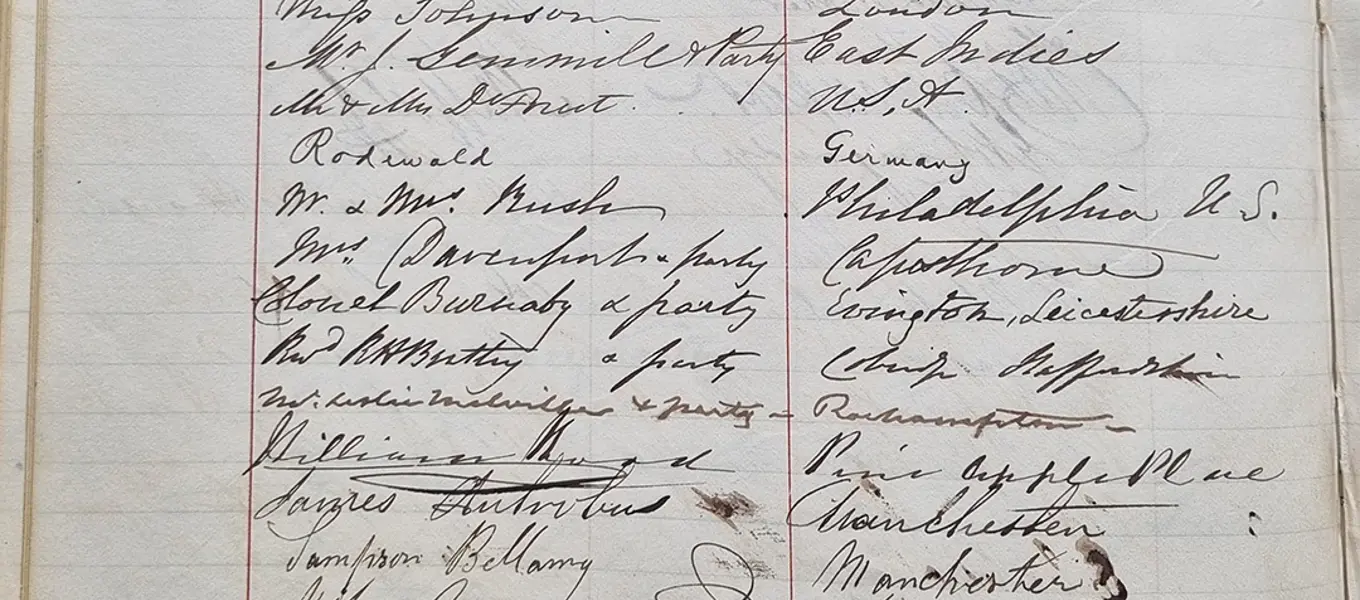 Miss Johnson London
Mr. J. Gemmill & Party East Indies
Mr & Mrs De Forest. U.S.A.
Rodewald Germany
Mr. & Mrs. Rush Philadelphia U.S.
Mrs. Davenport & party Capesthorne
Colonel Burnaby & party Evington, Leicestershire
Revd R H & party Cobridge Staffordshire
Mr. Leslie Melville & party – Roehampton –
William Wood Pine Apple Place
James Antrobus Manchester
Sampson Bellamy Manchester